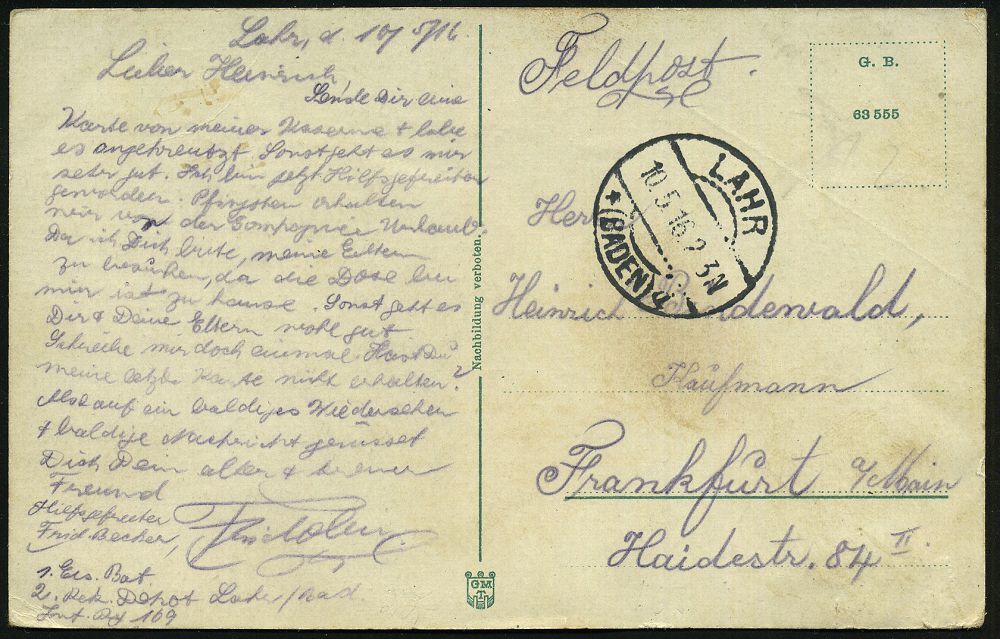 Lahr, d. 10/5/16.
Lieber Heinrich,
Sende Dir eine
Karte von meiner Kaserne + habe
es angekreutzt. Sonst geht es mir
sehr gut. Ich bin jetzt Hilfsgefreiter
geworden. Pfingsten erhalten
wir von der Compagnie Urlaub.
Da ich Dich bitte, meine Eltern
zu besuchen, da die Dose bei
mir ist zu hause. Sonst geht es
Dir & Deine Eltern wohl gut
Schreibe mir doch einmal Hast Du
meine letzte Karte nicht erhalten?
Also auf ein baldiges Wiedersehen
+ baldige Nachricht grüsset
Dich Dein alter & treuer
Freund
Hilfsgefreiter
Frid. Becher,
1. Ers. Bat
2. Rek. Depot Lahr/Bad
Inf. Rg 169
Nachbildung verboten.
GM
TH
Feldpost.
G. B.
63 555
LAHR
10.5.16.2-3N
* (BADEN) a
Herr
Heinrich
Kaufmann
Frankfurt a/Main
Haidestr. 84 II.